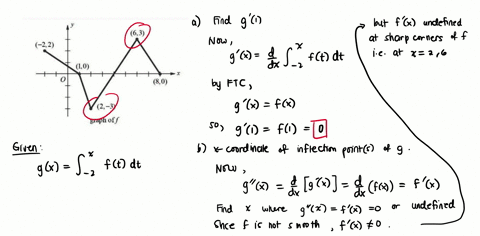 y
(6,3)
(−2,2)
(1,0)
O
(8,0)
x
(2,−3)
graph of f
Given:
g(x) = ∫₋₂ˣ f(t) dt
a) Find g'(1)
Now,
g'(x) = d/dx ∫₋₂ˣ f(t) dt
by FTC,
g'(x) = f(x)
so, g'(1) = f(1) = 0
b) x-coordinate of inflection point(s) of g.
Now,
g''(x) = d/dx [g'(x)] = d/dx (f(x)) = f'(x)
Find x where g''(x) = f'(x) = 0 or undefined
Since f is not smooth, f'(x) ≠ 0.
but f'(x) undefined
at sharp corners of f
i.e. at x = 2, 6